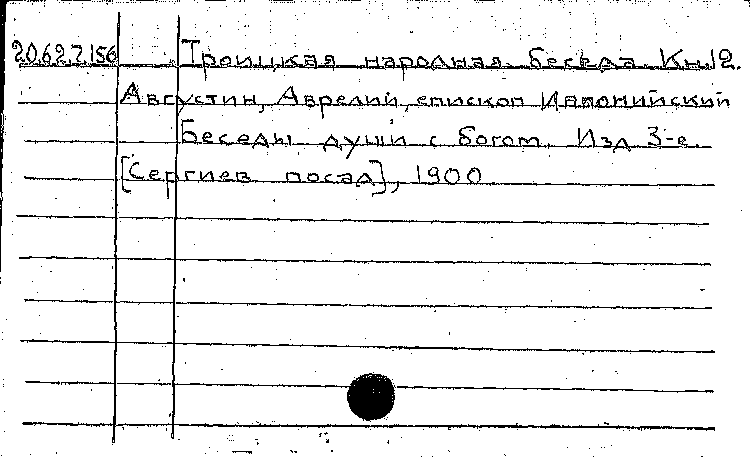 20.62.7.156 Троицкая народная беседа Кн.12.
Августин, Аврелий, епископ Иппонийский
Беседы души с богом. Изд 3-е.
[Сергиев посад], 1900